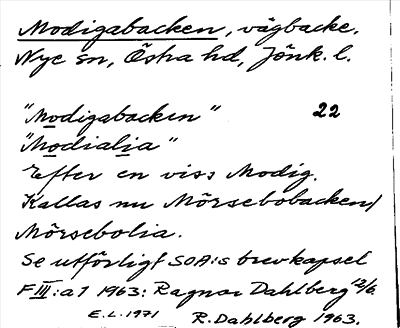 Modigabacken, vägbacke.
Nye sn, Östra hd, Jönk. l.
"Modigabacken" 22
"Modialia"
Efter en viss Modig.
Kallas nu Mörsebobacken/
Mörsebolia.
Se utförligt SOA:s brevkapsel
F III:a 7 1963: Ragnar Dahlberg 12/6.
E.L. 1971 R. Dahlberg 1963.